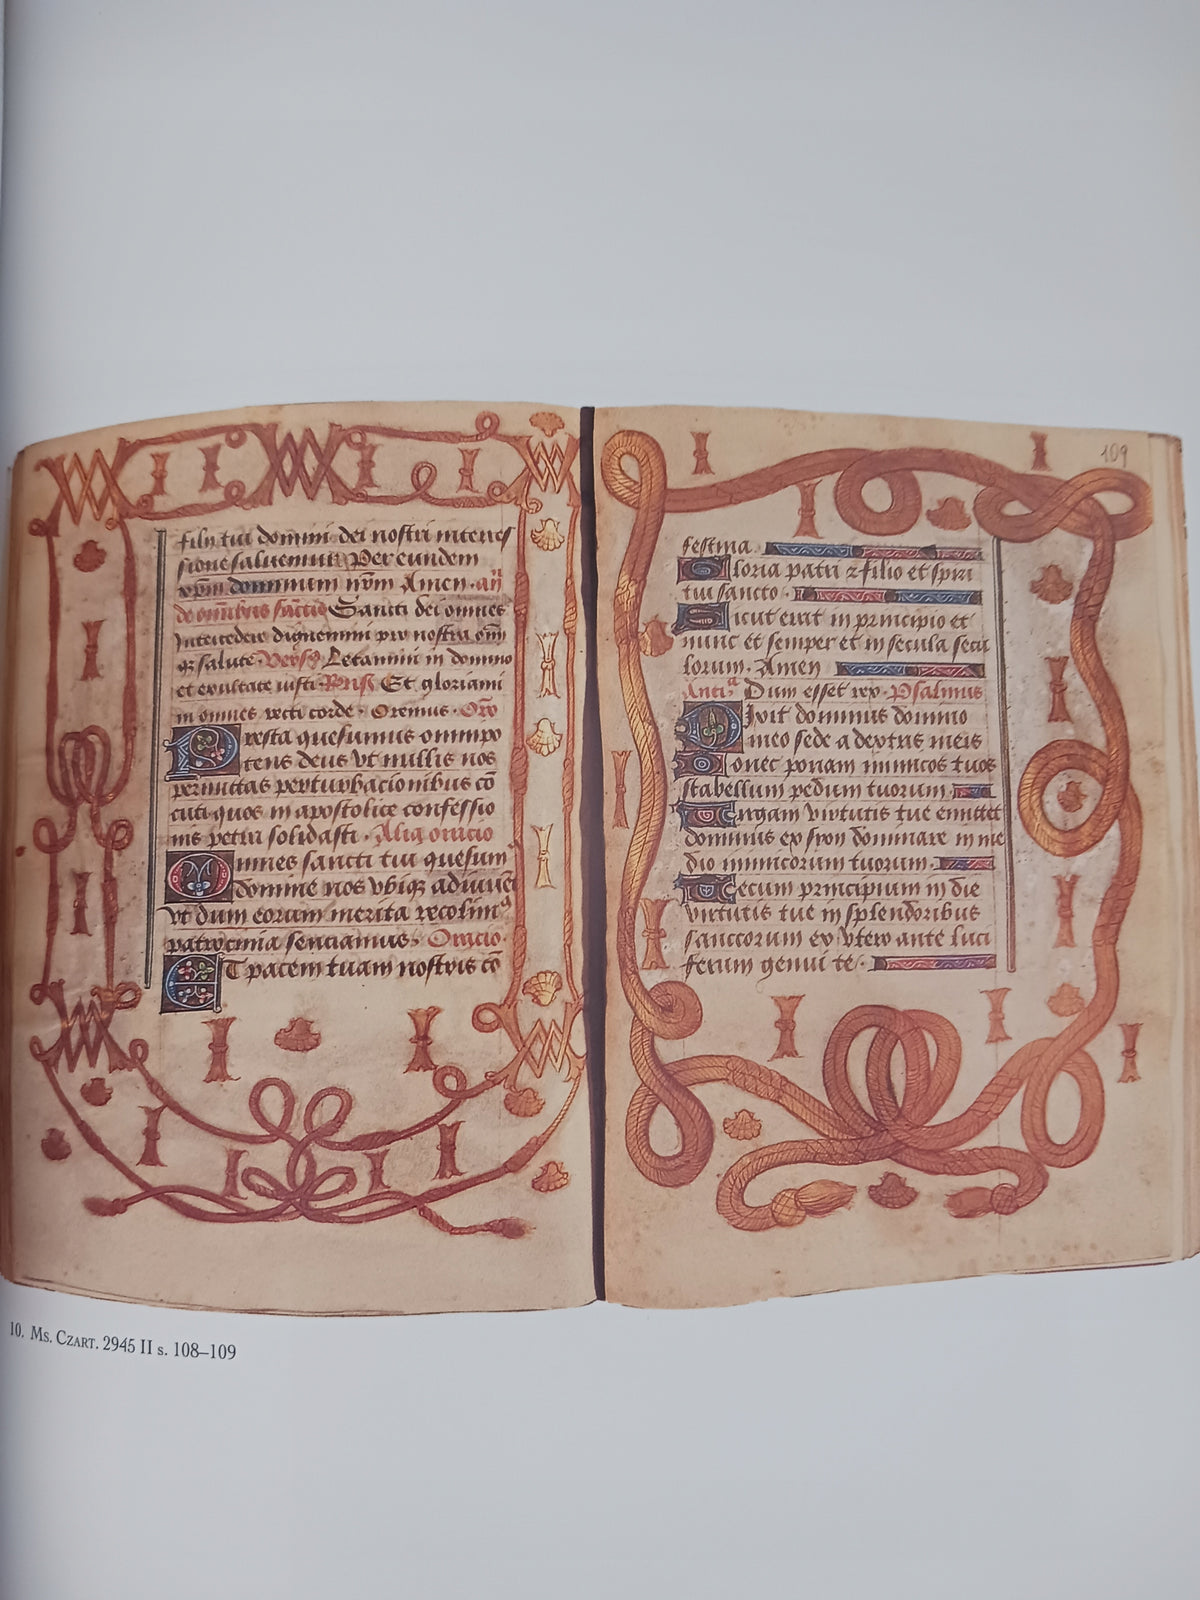 filii tui domini dei nostri interces
sione saluemur. Per eundem
xp̄m dominum nr̄m Amen. an̄
de om̄ibus sāctis Sancti dei omnes
Intercedere dignemini pro nostra om̄i
q̢ salute. Vers9 Letamini in domino
et exultate iusti. Et gloriami
ni omnes recti corde. Oremus. Oro
Presta quesumus omnipo
tens deus vt nullis nos
permittas perturbacionibus cō
cuti quos in apostolice confessio
nis petra solidasti. Alia oracio
Omnes sancti tui quesum9
domine nos vbiq̢ adiuuēt
vt dum eorum merita recolim9
patrocinia senciamus. Oracio.
ET pacem tuam nostris cō
109
festina.
Gloria patri z filio et spiri
tui sancto.
Sicut erat in principio et
nunc et semper et in secula secu
lorum. Amen
Anti.a Dum esset rex. Psalmus
Dixit dominus domino
meo sede a dextris meis
Donec ponam inimicos tuos
scabellum pedum tuorum.
Uirgam virtutis tue emittet
dominus ex syon dominare in me
dio inimicorum tuorum.
Tecum principium in die
virtutis tue in splendoribus
sanctorum ex vtero ante luci
ferum genui te.
10. Ms. Czart. 2945 II s. 108–109